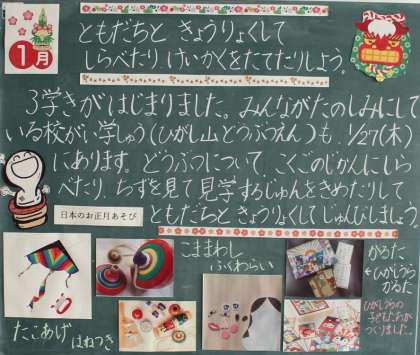 1月
ともだちと きょうりょくして
しらべたり けいかくをたてたりしよう。
3学きがはじまりました。みんながたのしみにして
いる校がい学しゅう(ひがし山どうぶつえん)も 1/27(木)
にあります。どうぶつについて こくごのじかんにしら
べたり、ちずを見て見学するじゅんをきめたりして
ともだちときょうりょくしてじゅんびしましょう。
日本のお正月あそび
たこあげ
はねつき
こままわし
ふくわらい
かるた
←ひがしうら
かるた
ひがしうらの
子どもたちが
つくりました。